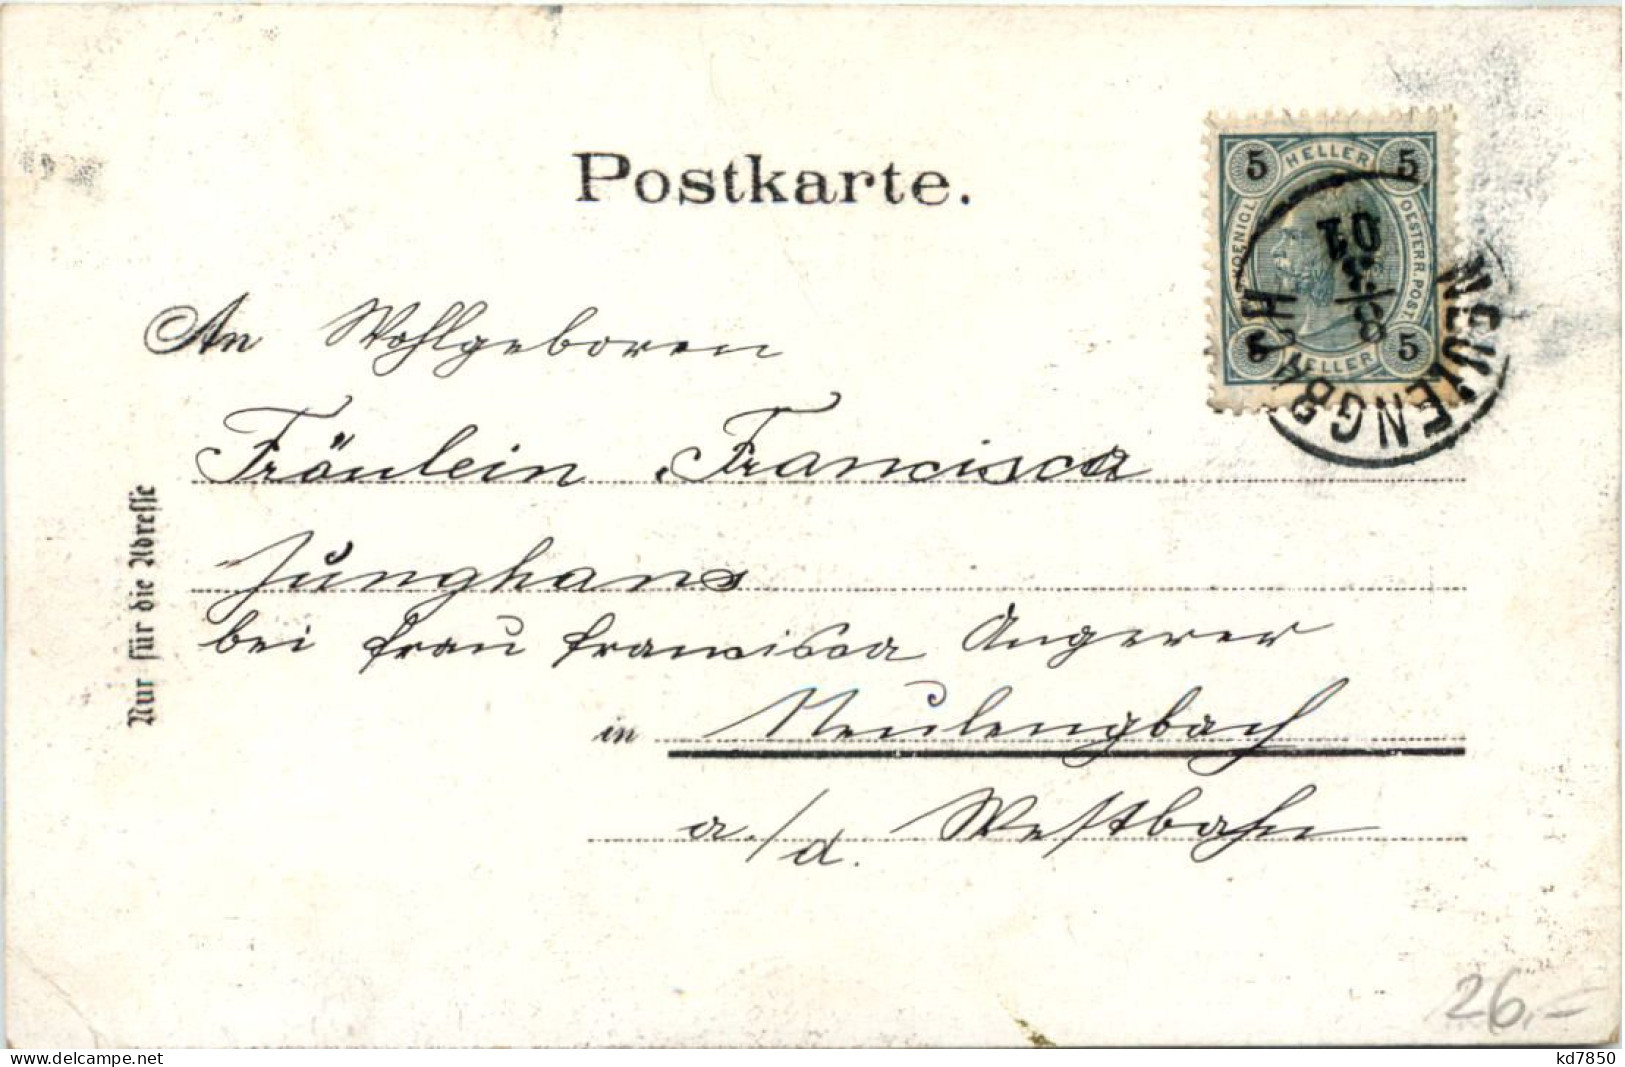 Postkarte.
5 HELLER 5
KOENIGL. OESTERR. POST.
5 HELLER 5
NEULENGBACH
8 3 01
An Wohlgeboren
Fräulein Francisca
Junghans
bei Frau Francisca Angerer
in Neulengbach
a./d. Westbahn
Nur für die Adresse
26,-
www.delcampe.net
kd7850